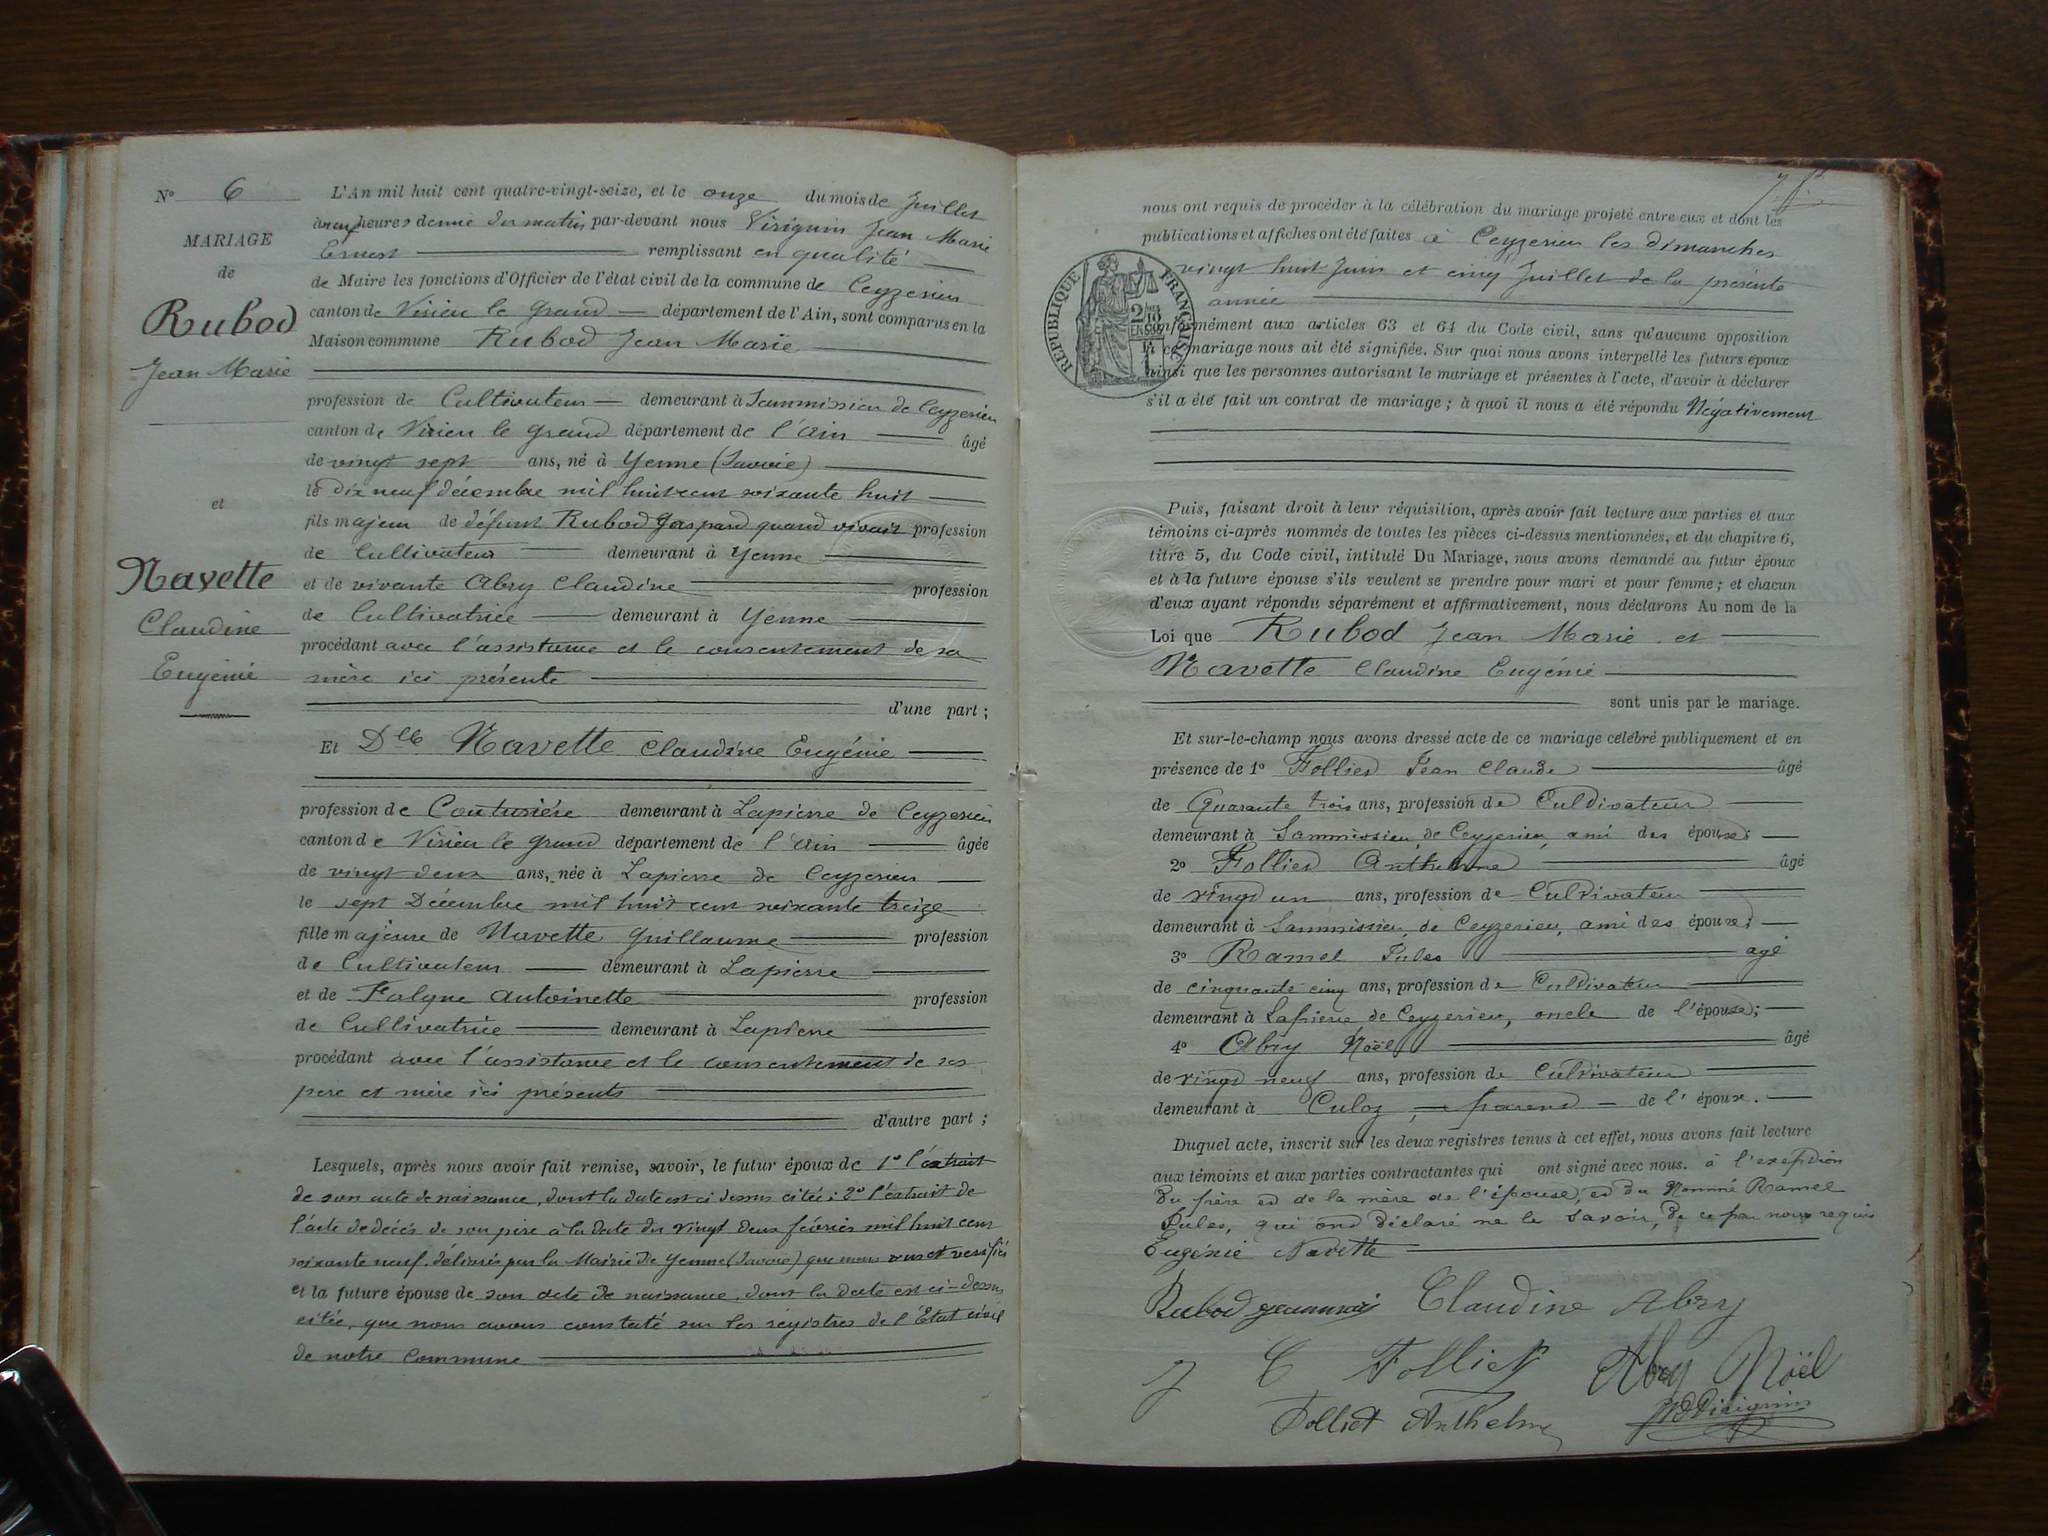 N° 6
MARIAGE
de
Rubod
Jean Marie
et
Navette
Claudine
Eugénie
L'An mil huit cent quatre-vingt-seize, et le onze du mois de Juillet
à neuf heures demie du matin par-devant nous Virignin Jean Marie
Ernest remplissant en qualité
de Maire les fonctions d'Officier de l'état civil de la commune de Ceyzerieu
canton de Virieu le Grand département de l'Ain, sont comparus en la
Maison commune Rubod Jean Marie
profession de Cultivateur demeurant à Sammissieu de Ceyzerieu
canton de Virieu le Grand département de l'Ain âgé
de vingt sept ans, né à Yenne (Savoie)
le dix neuf décembre mil huit cent soixante huit
fils majeur de défunt Rubod Gaspard quand vivait profession
de Cultivateur demeurant à Yenne
et de vivante Abry Claudine profession
de Cultivatrice demeurant à Yenne
procédant avec l'assistance et le consentement de sa
mère ici présente
d'une part ;
Et Dlle Navette Claudine Eugénie
profession de Couturière demeurant à Lapierre de Ceyzerieu
canton de Virieu le Grand département de l'Ain âgée
de vingt deux ans, née à Lapierre de Ceyzerieu
le sept Décembre mil huit cent soixante treize
fille majeure de Navette Guillaume profession
de Cultivateur demeurant à Lapierre
et de Falque Antoinette profession
de Cultivatrice demeurant à Lapierre
procédant avec l'assistance et le consentement de ses
pere et mère ici présents
d'autre part ;
Lesquels, après nous avoir fait remise, savoir, le futur époux de 1° l'extrait
de son acte de naissance, dont la date est ci dessus citée : 2° l'extrait de
l'acte de décès de son père à la date du vingt deux février mil huit cent
soixante neuf. délivrés par la Mairie de Yenne (Savoie) que nous avons vérifiés
et la future épouse de son acte de naissance, dont la date est ci-dessus
citée, que nous avons constaté sur les registres de l'Etat civil
de notre commune
nous ont requis de procéder à la célébration du mariage projeté entre eux et dont les
publications et affiches ont été faites à Ceyzerieu les dimanches
vingt huit Juin et cinq Juillet de la présente
année
RÉPUBLIQUE FRANÇAISE
conformément aux articles 63 et 64 du Code civil, sans qu'aucune opposition
à ce mariage nous ait été signifiée. Sur quoi nous avons interpellé les futurs époux
ainsi que les personnes autorisant le mariage et présentes à l'acte, d'avoir à déclarer
s'il a été fait un contrat de mariage ; à quoi il nous a été répondu Négativement
Puis, faisant droit à leur réquisition, après avoir fait lecture aux parties et aux
témoins ci-après nommés de toutes les pièces ci-dessus mentionnées, et du chapitre 6,
titre 5, du Code civil, intitulé Du Mariage, nous avons demandé au futur époux
et à la future épouse s'ils veulent se prendre pour mari et pour femme ; et chacun
d'eux ayant répondu séparément et affirmativement, nous déclarons Au nom de la
Loi que Rubod Jean Marie et
Navette Claudine Eugénie
sont unis par le mariage.
Et sur-le-champ nous avons dressé acte de ce mariage célébré publiquement et en
présence de 1° Folliet Jean Claude âgé
de Quarante trois ans, profession de Cultivateur
demeurant à Sammissieu de Ceyzerieu, ami des époux ;
2° Folliet Anthelme âgé
de vingt un ans, profession de Cultivateur
demeurant à Sammissieu, de Ceyzerieu, ami des époux ;
3° Ramel Jules agé
de cinquante cinq ans, profession de Cultivateur
demeurant à Lapierre de Ceyzerieu, oncle de l'épouse ;
4° Abry Noël âgé
de vingt neuf ans, profession de Cultivateur
demeurant à Culoz, parent de l'époux.
Duquel acte, inscrit sur les deux registres tenus à cet effet, nous avons fait lecture
aux témoins et aux parties contractantes qui ont signé avec nous. à l'exeption
du père et de la mère de l'épouse, et du Nommé Ramel
Jules, qui ont déclaré ne le savoir, de ce par nous requis
Eugénie Navette
Rubod jeanmari Claudine Abry
J C Folliet Abry Noël
Folliet Anthelme Virignin